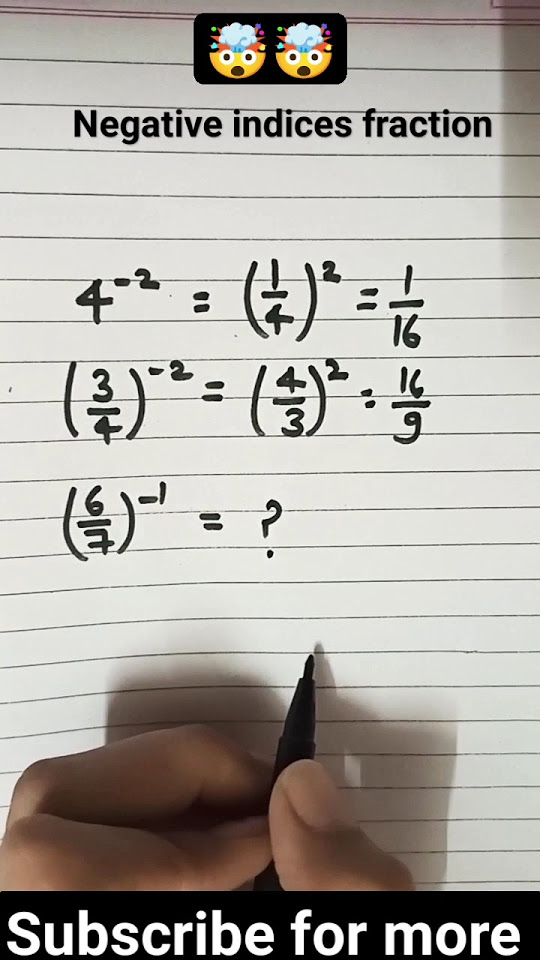 Negative indices fraction
4⁻² = (1/4)² = 1/16
(3/4)⁻² = (4/3)² = 16/9
(6/7)⁻¹ = ?
Subscribe for more